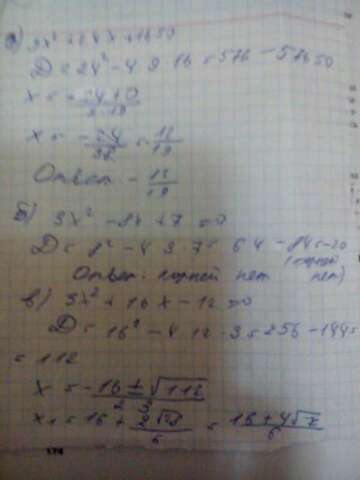 а) 9x² + 24x + 16 = 0
D = 24² - 4 · 9 · 16 = 576 - 576 = 0
x = -24+0 / 2·19
x = -24/38 = 12/19
Ответ: -12/19
б) 3x² - 8x + 7 = 0
D = 8² - 4 · 3 · 7 = 64 - 84 = -20
(корней
Ответ: корней нет нет)
в) 3x² + 16x - 12 = 0
D = 16² - 4 · 12 · 3 = 256 - 144 =
= 112
x = -16 ± √112 / 2·3
x₁ = 16 + / 6 = 16 + 4√7 / 6
174